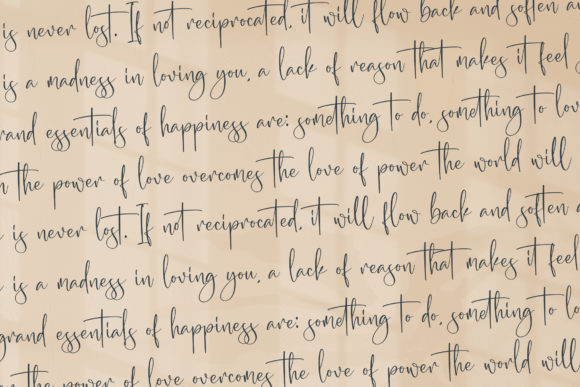 is never lost. If not reciprocated, it will flow back and soften a
is a madness in loving you, a lack of reason that makes it feel
rand essentials of happiness are: something to do, something to lov
n the power of love overcomes the love of power the world will
is never lost. If not reciprocated, it will flow back and soften a
is a madness in loving you, a lack of reason that makes it feel
grand essentials of happiness are: something to do, something to lo
n the power of love overcomes the love of power the world will